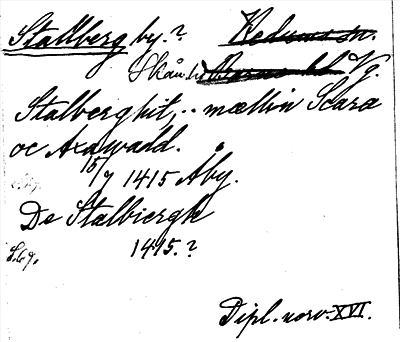 Stallberg by.? Kedums sn.
Skån. hd Vg.
Stalberghit, .. mællin Scara
oc Axawadd.
15/7 1415 Åby.
De Stalbiergh
S. 69. 1415.?
Dipl. norv. XVI.